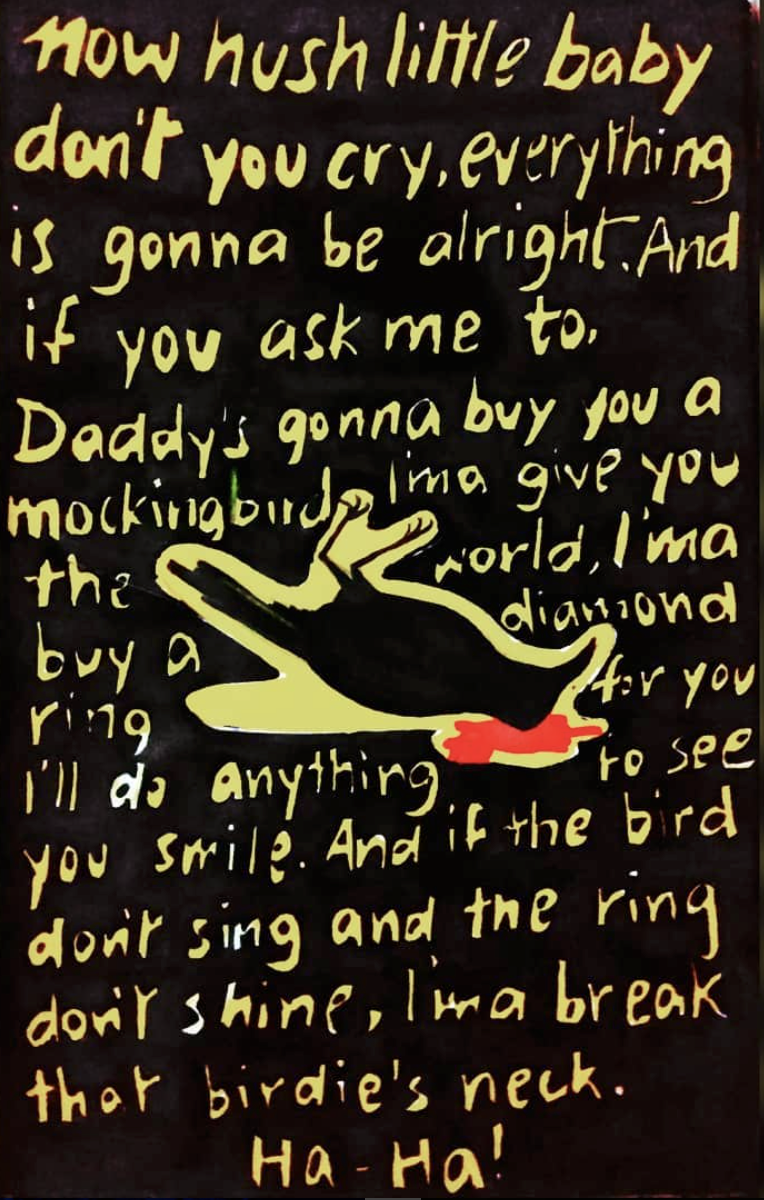 Now hush little baby
don't you cry, everything
is gonna be alright. And
if you ask me to,
Daddy's gonna buy you a
mockingbird, I'ma give you
the world, I'ma
buy a diamond
ring for you
I'll do anything to see
you smile. And if the bird
don't sing and the ring
don't shine, I'ma break
that birdie's neck.
Ha-Ha!